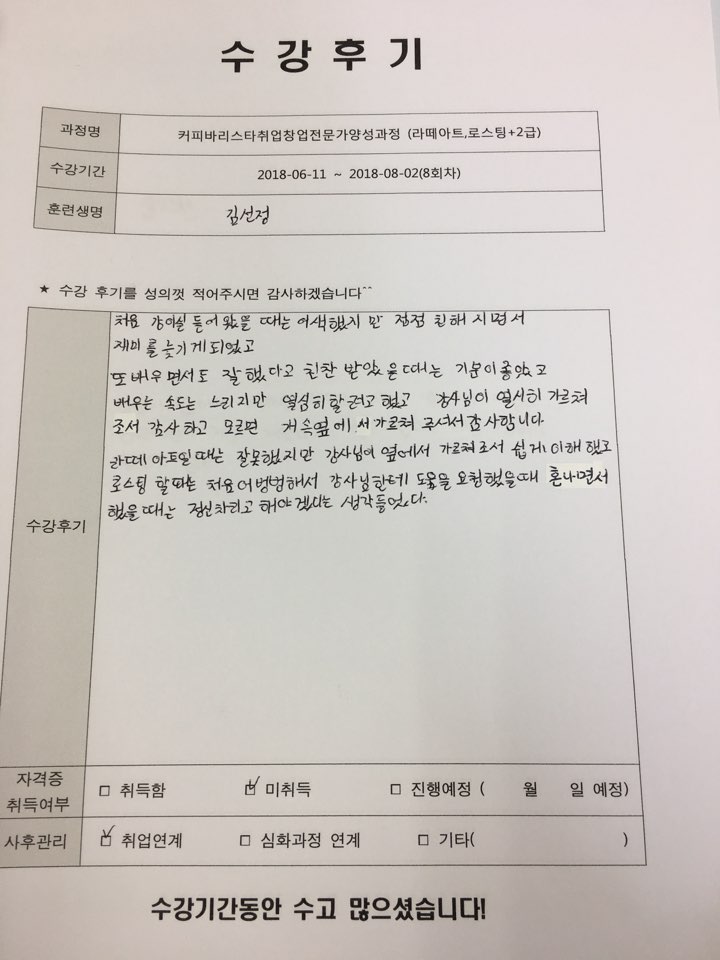 수강후기
과정명 커피바리스타취업창업전문가양성과정 (라떼아트,로스팅+2급)
수강기간 2018-06-11 ~ 2018-08-02(8회차)
훈련생명 김선정
★ 수강 후기를 성의껏 적어주시면 감사하겠습니다^^
처음 강의실 들어 왔을 때는 어색했지 만 점점 친해 지면서
재미를 늦기게되었고
또 배우 면서도 잘 했다고 친찬 받았을때는 기분이좋았고
배우는 속도는 느리지만 열심히할려고 했고 강사님이 열시히 가르쳐
조서 감사 하고 모르면 계속옆에서 가르쳐 주셔서 감사합니다.
라떼 아트일 때는 잘못했지만 강사님이 옆에서 가르쳐조서 쉽게이해 했고
로스팅 할때는 처음 어벙벙해서 강사님한테 도움을 요청했을때 혼나면서
했을때는 정신차리고 해야겠다는 생각들었다.
수강후기
자격증
취득여부
□ 취득함 ☑ 미취득 □ 진행예정 ( 월 일 예정)
사후관리 ☑ 취업연계 □ 심화과정 연계 □ 기타( )
수강기간동안 수고 많으셨습니다!